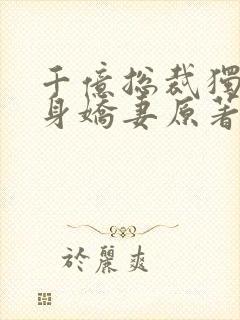 千億總裁獨
身嬌妻原著
於麗爽